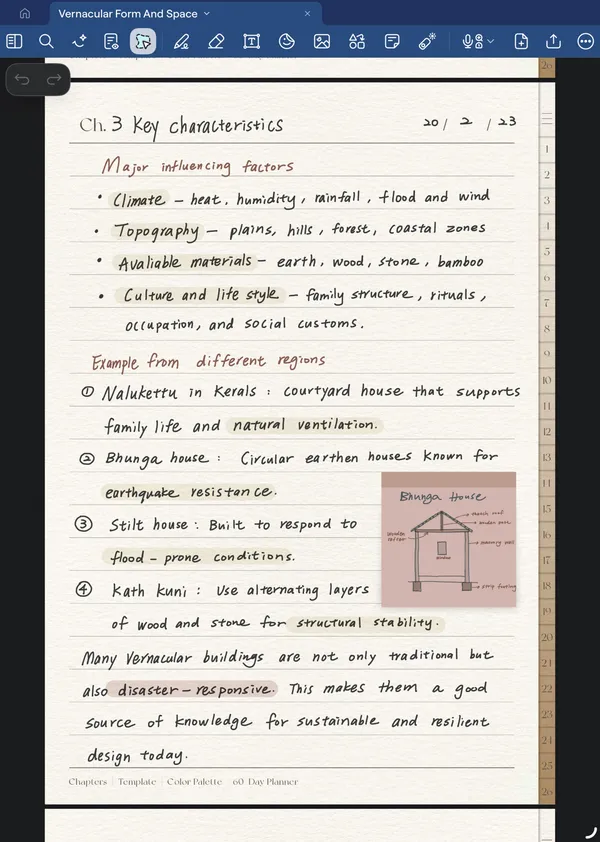 Vernacular Form And Space
Ch. 3 Key characteristics
20 / 2 / 23
Major influencing factors
• Climate – heat, humidity, rainfall, flood and wind
• Topography – plains, hills, forest, coastal zones
• Avaliable materials – earth, wood, stone, bamboo
• Culture and life style – family structure, rituals,
occupation, and social customs.
Example from different regions
① Nalukettu in Kerals : courtyard house that supports
family life and natural ventilation.
② Bhunga house : Circular earthen houses known for
earthquake resistance.
Bhunga House
thatch roof
wooden
window
strip footing
③ Stilt house : Built to respond to
flood – prone conditions.
④ Kath kuni : Use alternating layers
of wood and stone for structural stability.
Many Vernacular buildings are not only traditional but
also disaster – responsive. This makes them a good
source of knowledge for sustainable and resilient
design today.
Chapters | Template | Color Palette 60 Day Planner
26
1
2
3
4
5
6
7
8
9
10
11
12
13
11
15
16
17
18
19
20
21
22
23
24
25
26